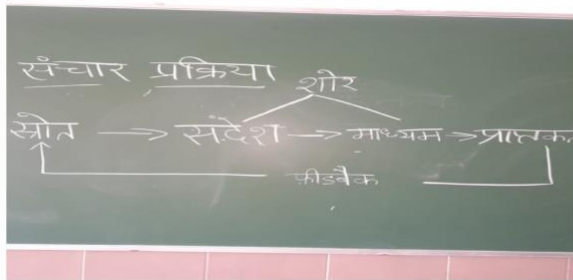 संचार प्रक्रिया
शोर
स्रोत → संदेश → माध्यम →
फ़ीडबैक